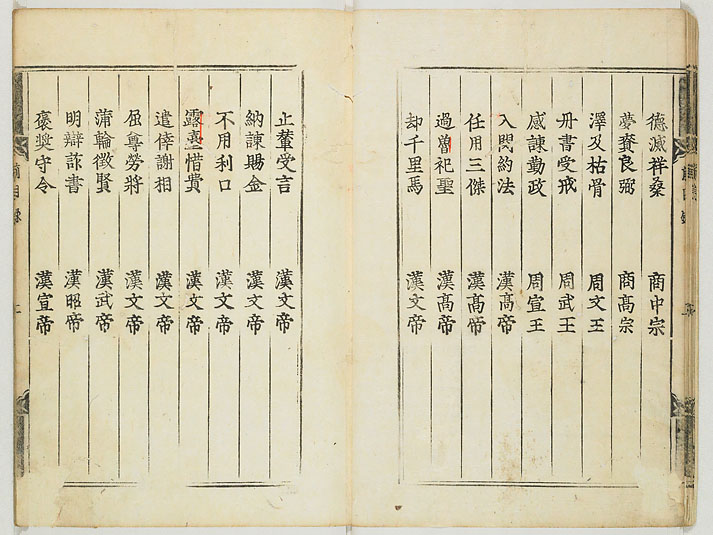 德滅祥桑 商中宗
夢賚良弼 商高宗
澤及枯骨 周文王
丹書受戒 周武王
感諫勤政 周宣王
入關約法 漢高帝
任用三傑 漢高帝
過魯祀聖 漢高帝
却千里馬 漢文帝
止輦受言 漢文帝
納諫賜金 漢文帝
不用利口 漢文帝
露臺惜費 漢文帝
遣倖謝相 漢文帝
屈尊勞將 漢文帝
蒲輪徵賢 漢武帝
明辯詐書 漢昭帝
褒奬守令 漢宣帝